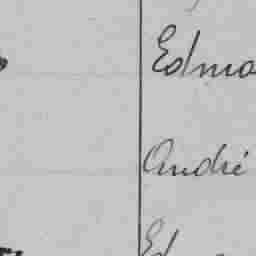 Edmo
André
Ed